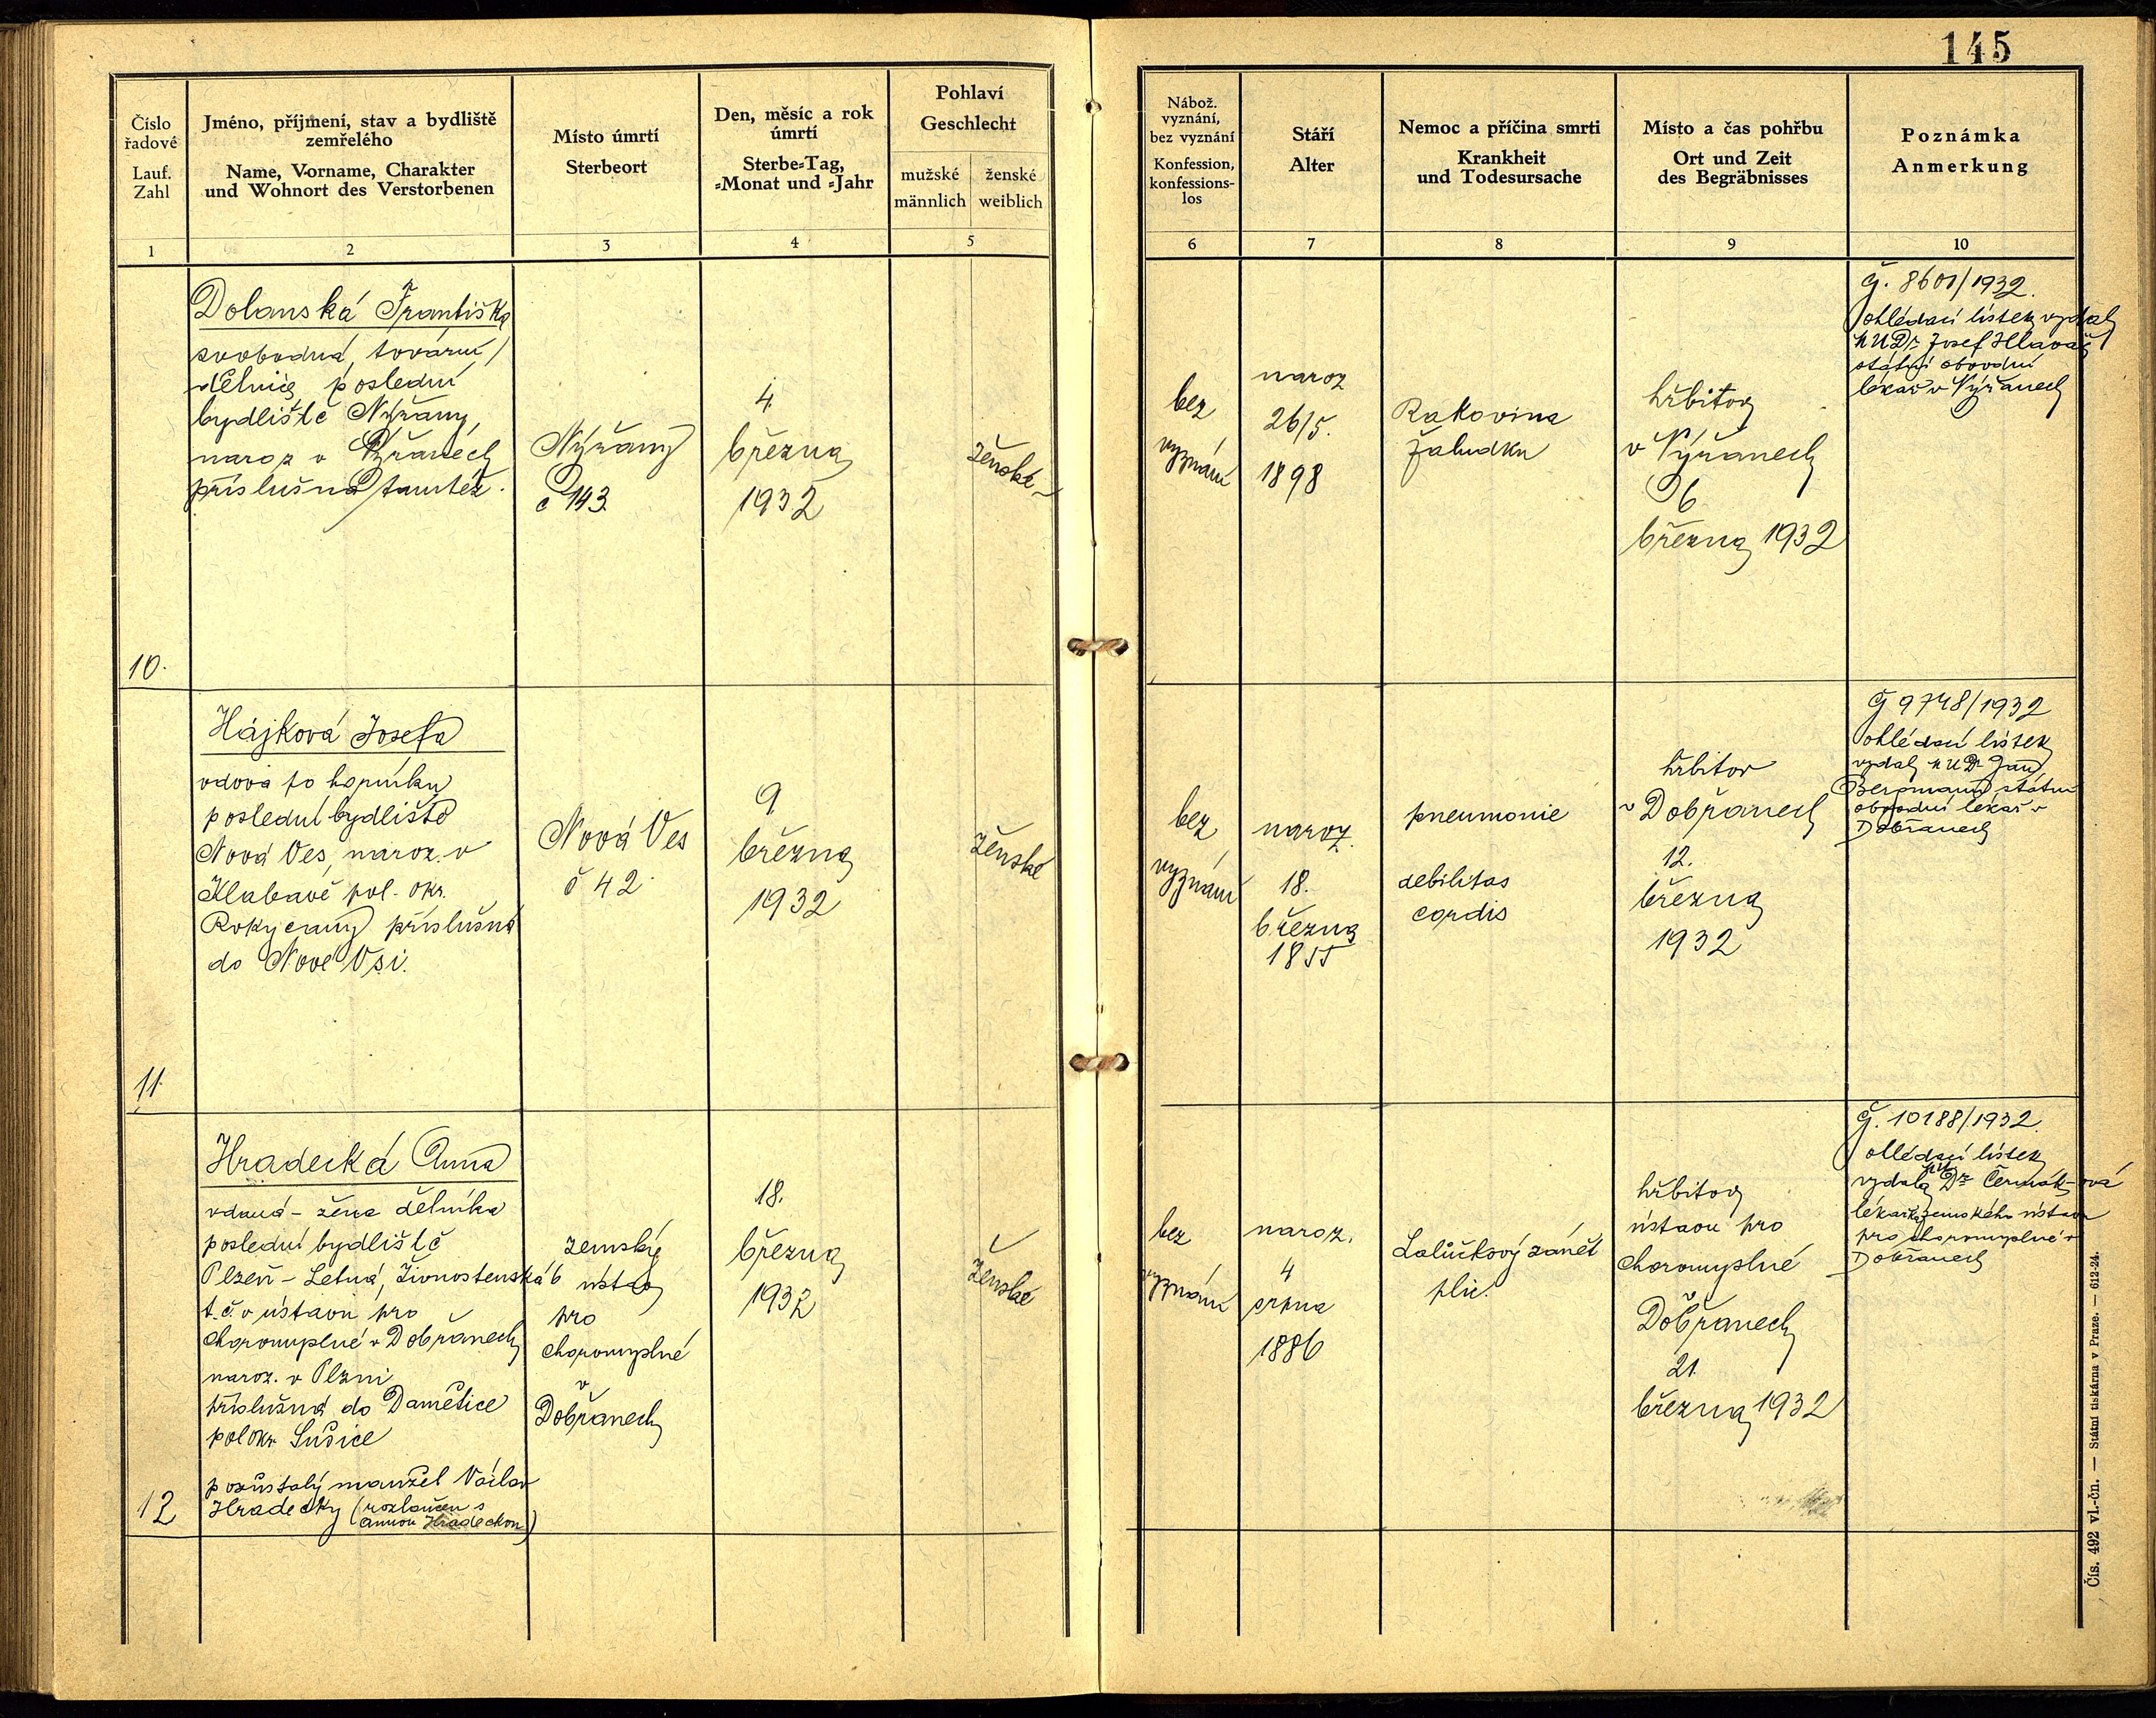 145
Číslo
řadové
Lauf.
Zahl
1
Jméno, příjmení, stav a bydliště
zemřelého
Name, Vorname, Charakter
und Wohnort des Verstorbenen
2
Místo úmrtí
Sterbeort
3
Den, měsíc a rok
úmrtí
Sterbe-Tag,
-Monat und -Jahr
4
Pohlaví
Geschlecht
mužské
männlich
ženské
weiblich
5
Nábož.
vyznání,
bez vyznání
Konfession,
konfessions-
los
6
Stáří
Alter
7
Nemoc a příčina smrti
Krankheit
und Todesursache
8
Místo a čas pohřbu
Ort und Zeit
des Begräbnisses
9
Poznámka
Anmerkung
10
10.
Dolanská Františka
svobodná, tovární
dělnice, poslední
bydliště Nýřany,
naroz v Nýřanech
příslušná tamtéž.
Nýřany
č 143.
4.
března
1932
ženské
bez
vyznání
naroz
26/5.
1898
Rakovina
žaludku
hřbitov
v Nýřanech
6
března 1932
Č. 8601/1932.
ohledací lístek vydal
MUDr Josef Hlaváč
státní obvodní
lékař v Nýřanech
11.
Hájková Josefa
vdova po horníku
poslední bydliště
Nová Ves, naroz. v
Klabavě pol. okr.
Rokycany příslušná
do Nové Vsi.
Nová Ves
č 42
9.
března
1932
ženské
bez
vyznání
naroz.
18.
března
1855
pneumonie
debilitas
cordis
hřbitov
v Dobřanech
12.
března
1932
Č 9748/1932
ohledací lístek
vydal MUDr Jan
Bergmann státní
obvodní lékař v
Dobřanech
12
Hradecká Anna
vdaná - žena dělníka
poslední bydliště
Plzeň - Letná, Živnostenská 6
t. č. v ústavu pro
choromyslné v Dobřanech
naroz. v Plzni
příslušná do Damětice
pol okr Sušice
pozůstalý manžel Václav
Hradecký (rozloučen s
Annou Hradeckou)
zemský
ústav
pro
choromyslné
v
Dobřanech
18.
března
1932
ženské
bez
vyznání
naroz.
4
srpna
1886
Lalůčkový zánět
plic.
hřbitov
ústavu pro
choromyslné
v
Dobřanech
21.
března 1932
Č. 10188/1932.
ohledací lístek
vydala MUDr Čermáková
lékařka zemského ústavu
pro choromyslné v
Dobřanech
Čís. 492 vl.-čn. — Státní tiskárna v Praze. — 612-24.